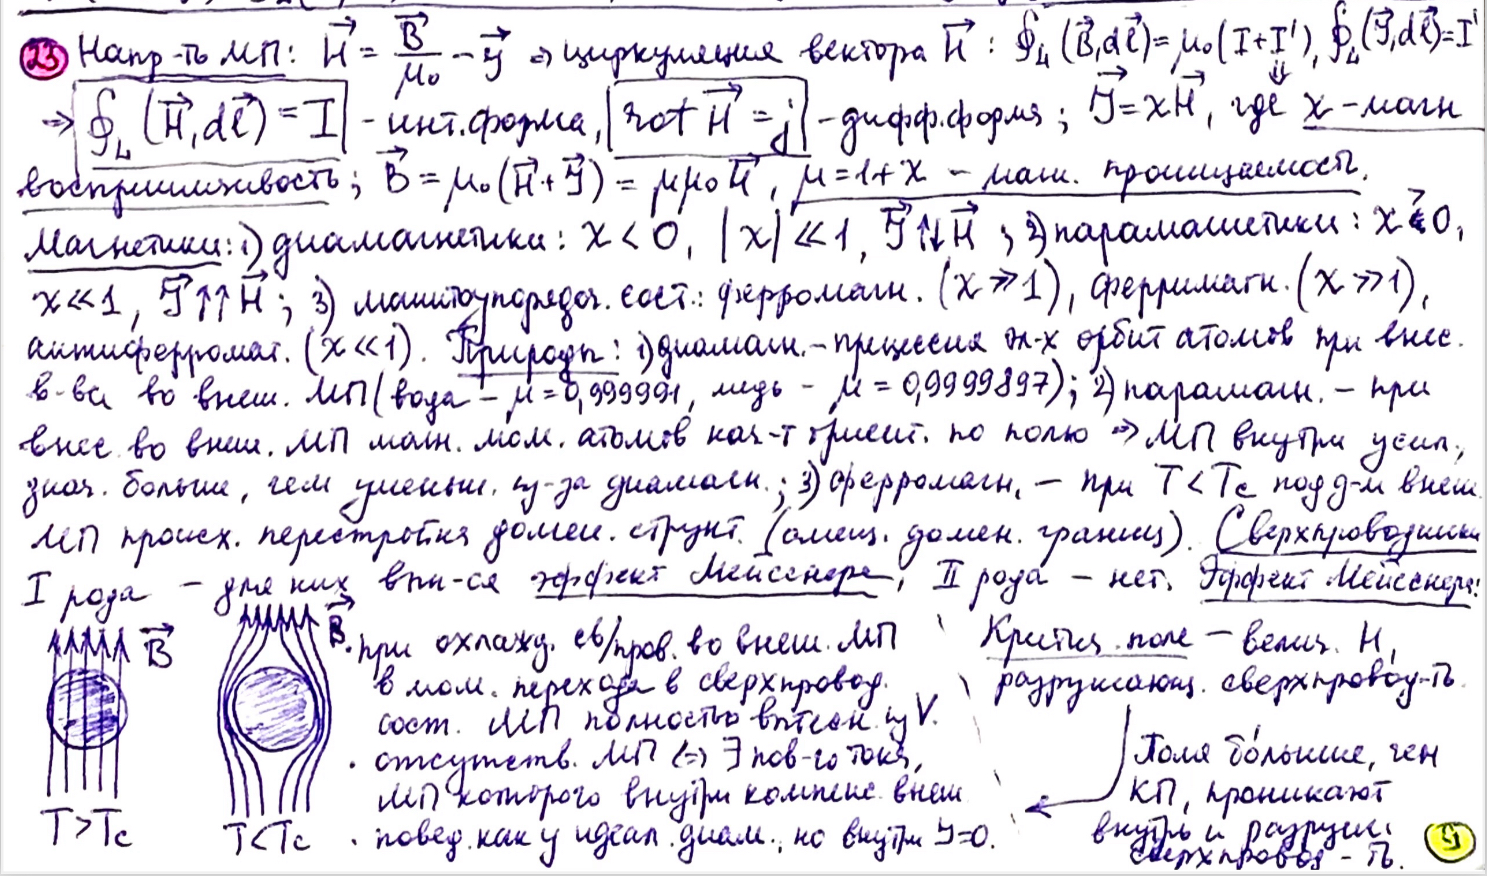 23 Напр-ть МП: H⃗ = B⃗/μ₀ − J⃗ ⇒ циркуляция вектора H⃗ : ∮_L (B⃗,dℓ⃗) = μ₀(I+I'), ∮_L (J⃗,dℓ⃗) = I'
⇒ ∮_L (H⃗,dℓ⃗) = I - инт.форма, rot H⃗ = j⃗ - дифф.форма ; J⃗ = xH⃗, где x - магн
восприимчивость ; B⃗ = μ₀(H⃗+J⃗) = μμ₀H⃗, μ = 1+x - магн. проницаемость.
Магнетики: 1) диамагнетики : x < 0, |x| ≪ 1, J⃗↑↓H⃗ ; 2) парамагнетики : x > 0,
x ≪ 1, J⃗↑↑H⃗ ; 3) магнитоупорядоч. сост.: ферромагн. (x ≫ 1), ферримагн. (x ≫ 1),
антиферромаг. (x ≪ 1). Природа : 1) диамагн. - прецессия эл-х орбит атомов при внес.
в-ва во внеш. МП (вода - μ = 0,999991, медь - μ = 0,9999897) ; 2) парамагн. - при
внес. во внеш. МП магн. мом. атомов нач-т ориент. по полю ⇒ МП внутри усил.,
знач. больше, чем уменьш. из-за диамагн. ; 3) ферромагн. - при T < Tc под д-м внеш.
МП происх. перестройка домен. структ. (смещ. домен. границ). Сверхпроводники
I рода - для них вып-ся эффект Мейсснера, II рода - нет. Эффект Мейсснера:
B⃗
T > Tc
B⃗
T < Tc
· при охлажд. св/пров. во внеш. МП
в мом. перехода в сверхпровод.
сост. МП полностью вытесн. из V.
· отсутств. МП ⇔ ∃ пов-го тока,
МП которого внутри компенс. внеш
· повед. как у идеал. диам., но внутри J=0.
Критич. поле - велич. H,
разрушающ. сверхпровод-ть.
Поля бо́льшие, чем
КП, проникают
внутрь и разруш.
сверхпровод-ть.
9